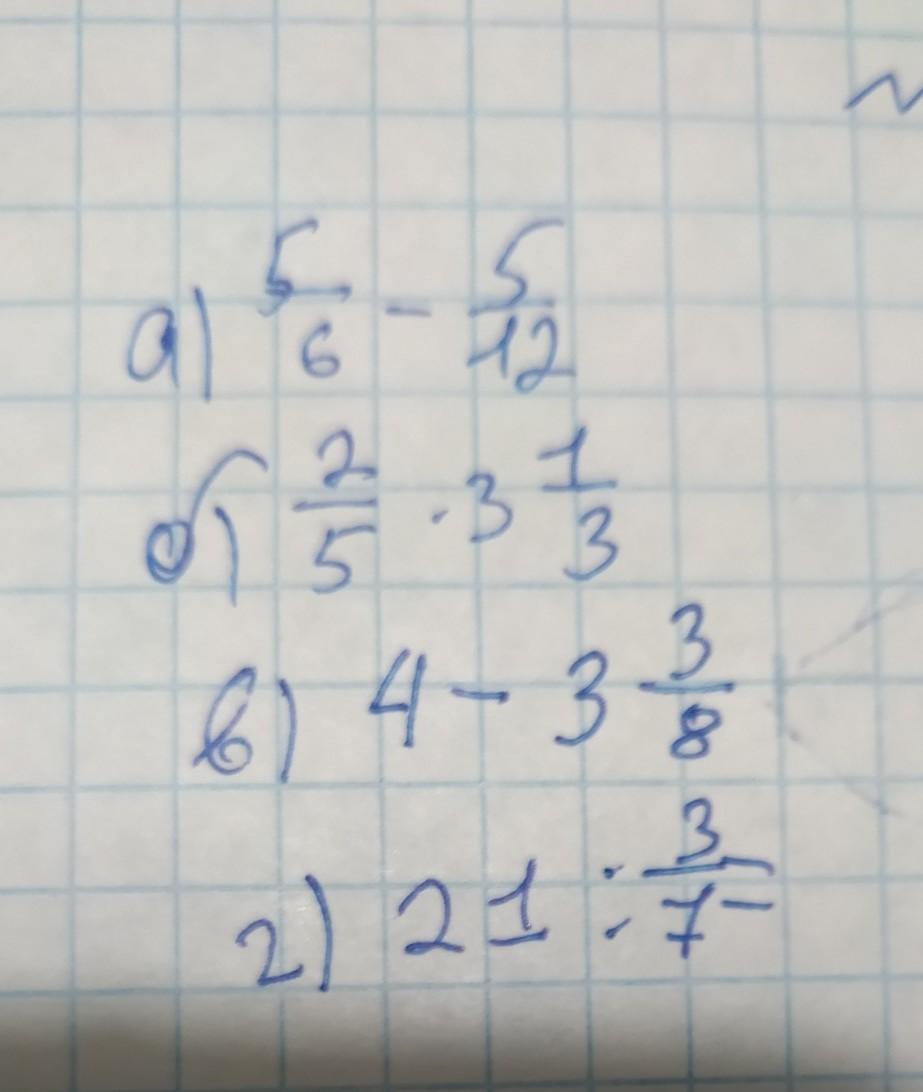 а) 5/6 - 5/12
б) 2/5 · 3 1/3
в) 4 - 3 3/8
г) 21 : 3/7